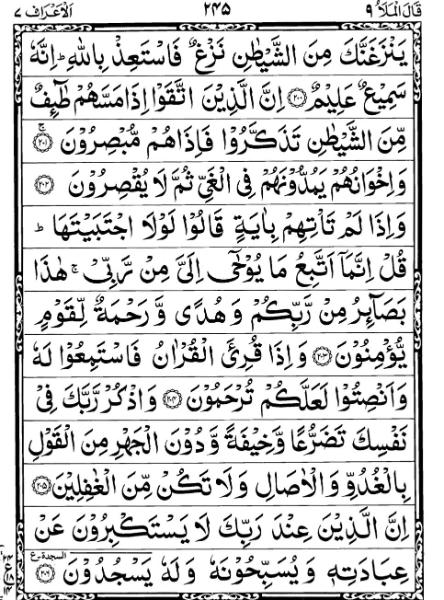 قَالَ الْمَلَاُ ٩ ٢٤٥ اَلْاَعْرَاف ٧
يَنْزَغَنَّكَ مِنَ الشَّيْطٰنِ نَزْغٌ فَاسْتَعِذْ بِاللّٰهِ ؕ اِنَّهٗ
سَمِيْعٌ عَلِيْمٌ ﴿۲۰۰﴾ اِنَّ الَّذِيْنَ اتَّقَوْا اِذَا مَسَّهُمْ طٰٓئِفٌ
مِّنَ الشَّيْطٰنِ تَذَكَّرُوْا فَاِذَا هُمْ مُّبْصِرُوْنَ ۚ ﴿۲۰۱﴾
وَاِخْوَانُهُمْ يَمُدُّوْنَهُمْ فِى الْغَىِّ ثُمَّ لَا يُقْصِرُوْنَ ﴿۲۰۲﴾
وَاِذَا لَمْ تَاْتِهِمْ بِاٰيَةٍ قَالُوْا لَوْلَا اجْتَبَيْتَهَا ؕ
قُلْ اِنَّمَاۤ اَتَّبِعُ مَا يُوْحٰٓى اِلَىَّ مِنْ رَّبِّىْ ۚ هٰذَا
بَصَآئِرُ مِنْ رَّبِّكُمْ وَهُدًى وَّرَحْمَةٌ لِّقَوْمٍ
يُّؤْمِنُوْنَ ﴿۲۰۳﴾ وَاِذَا قُرِئَ الْقُرْاٰنُ فَاسْتَمِعُوْا لَهٗ
وَاَنْصِتُوْا لَعَلَّكُمْ تُرْحَمُوْنَ ﴿۲۰۴﴾ وَاذْكُرْ رَّبَّكَ فِىْ
نَفْسِكَ تَضَرُّعًا وَّخِيْفَةً وَّدُوْنَ الْجَهْرِ مِنَ الْقَوْلِ
بِالْغُدُوِّ وَالْاٰصَالِ وَلَا تَكُنْ مِّنَ الْغٰفِلِيْنَ ﴿۲۰۵﴾
اِنَّ الَّذِيْنَ عِنْدَ رَبِّكَ لَا يَسْتَكْبِرُوْنَ عَنْ
عِبَادَتِهٖ وَيُسَبِّحُوْنَهٗ وَلَهٗ يَسْجُدُوْنَ ۩ ﴿۲۰۶﴾ السجدة